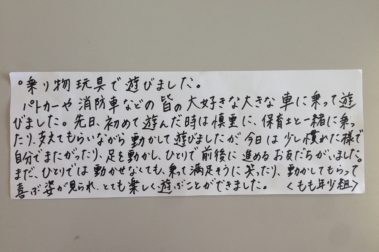 ○乗り物玩具で遊びました。
パトカーや消防車などの皆の大好きな大きな車に乗って遊
びました。先日、初めて遊んだ時は慎重に、保育士と一緒に乗っ
たり、支えてもらいながら動かして遊びましたが、今日は少し慣れた様で
自分でまたがったり、足を動かし、ひとりで前後に進めるお友だちがいました。
まだ、ひとりでは動かせなくても、乗って満足そうに笑ったり、動かしてもらって
喜ぶ姿が見られ、とても楽しく遊ぶことができました。 くもも年少組>